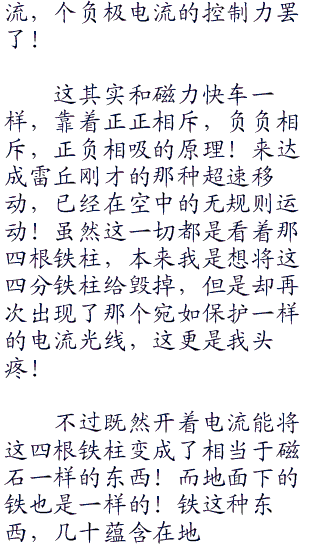 流，个负极电流的控制力罢
了！
这其实和磁力快车一
样，靠着正正相斥，负负相
斥，正负相吸的原理！来达
成雷丘刚才的那种超速移
动，已经在空中的无规则运
动！虽然这一切都是看着那
四根铁柱，本来我是想将这
四分铁柱给毁掉，但是却再
次出现了那个宛如保护一样
的电流光线，这更是我头
疼！
不过既然开着电流能将
这四根铁柱变成了相当于磁
石一样的东西！而地面下的
铁也是一样的！铁这种东
西，几十蕴含在地